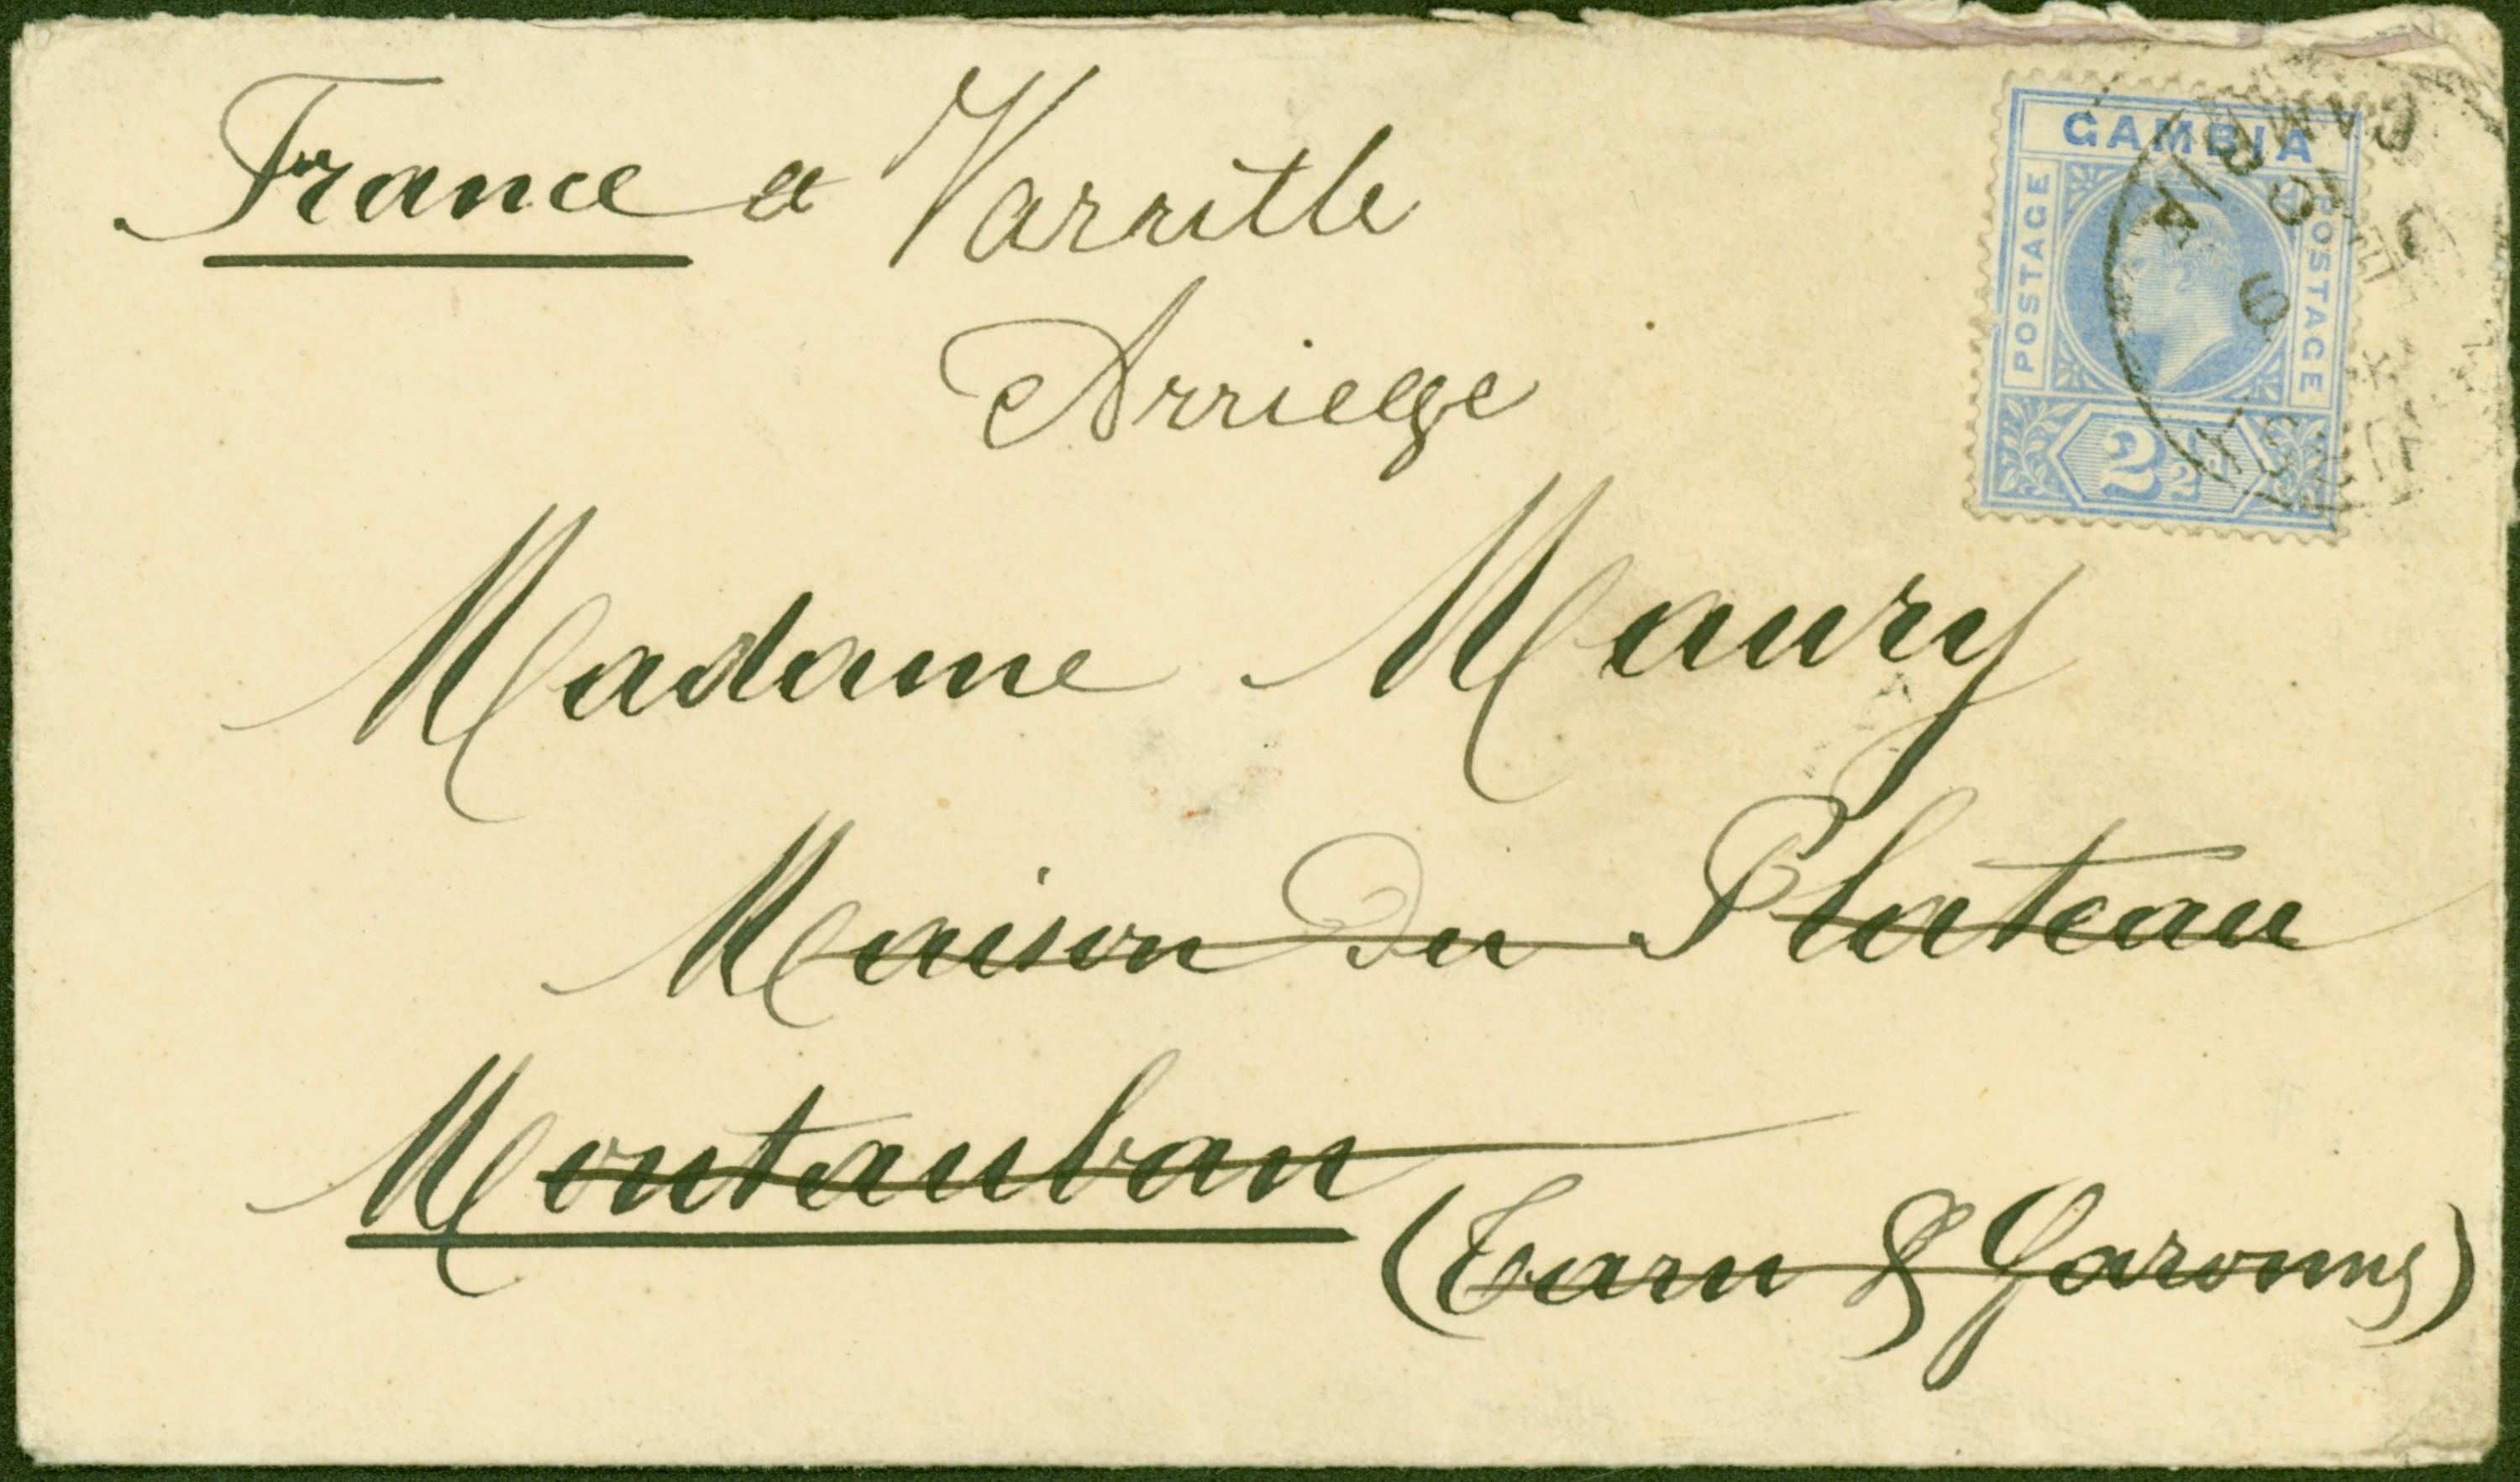 France a Varritle
Arriege
GAMBIA
POSTAGE
POSTAGE
2 1/2
GAMBIA
Madame Maury
Maison Du Plateau
Montauban
(Tarn & Garonne)